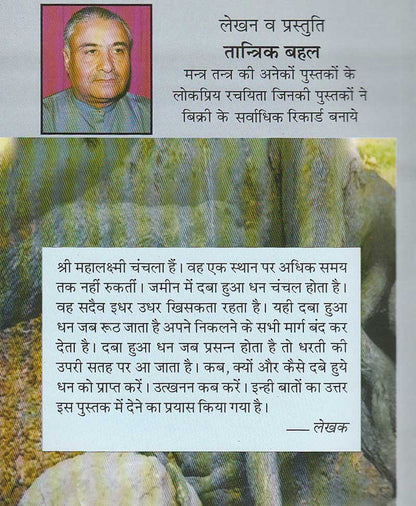 लेखन व प्रस्तुति
तान्त्रिक बहल
मन्त्र तन्त्र की अनेकों पुस्तकों के
लोकप्रिय रचयिता जिनकी पुस्तकों ने
बिक्री के सर्वाधिक रिकार्ड बनाये
श्री महालक्ष्मी चंचला हैं। वह एक स्थान पर अधिक समय
तक नहीं रुकतीं। जमीन में दबा हुआ धन चंचल होता है।
वह सदैव इधर उधर खिसकता रहता है। यही दबा हुआ
धन जब रूठ जाता है अपने निकलने के सभी मार्ग बंद कर
देता है। दबा हुआ धन जब प्रसन्न होता है तो धरती की
उपरी सतह पर आ जाता है। कब, क्यों और कैसे दबे हुये
धन को प्राप्त करें। उत्खनन कब करें। इन्ही बातों का उत्तर
इस पुस्तक में देने का प्रयास किया गया है।
— लेखक